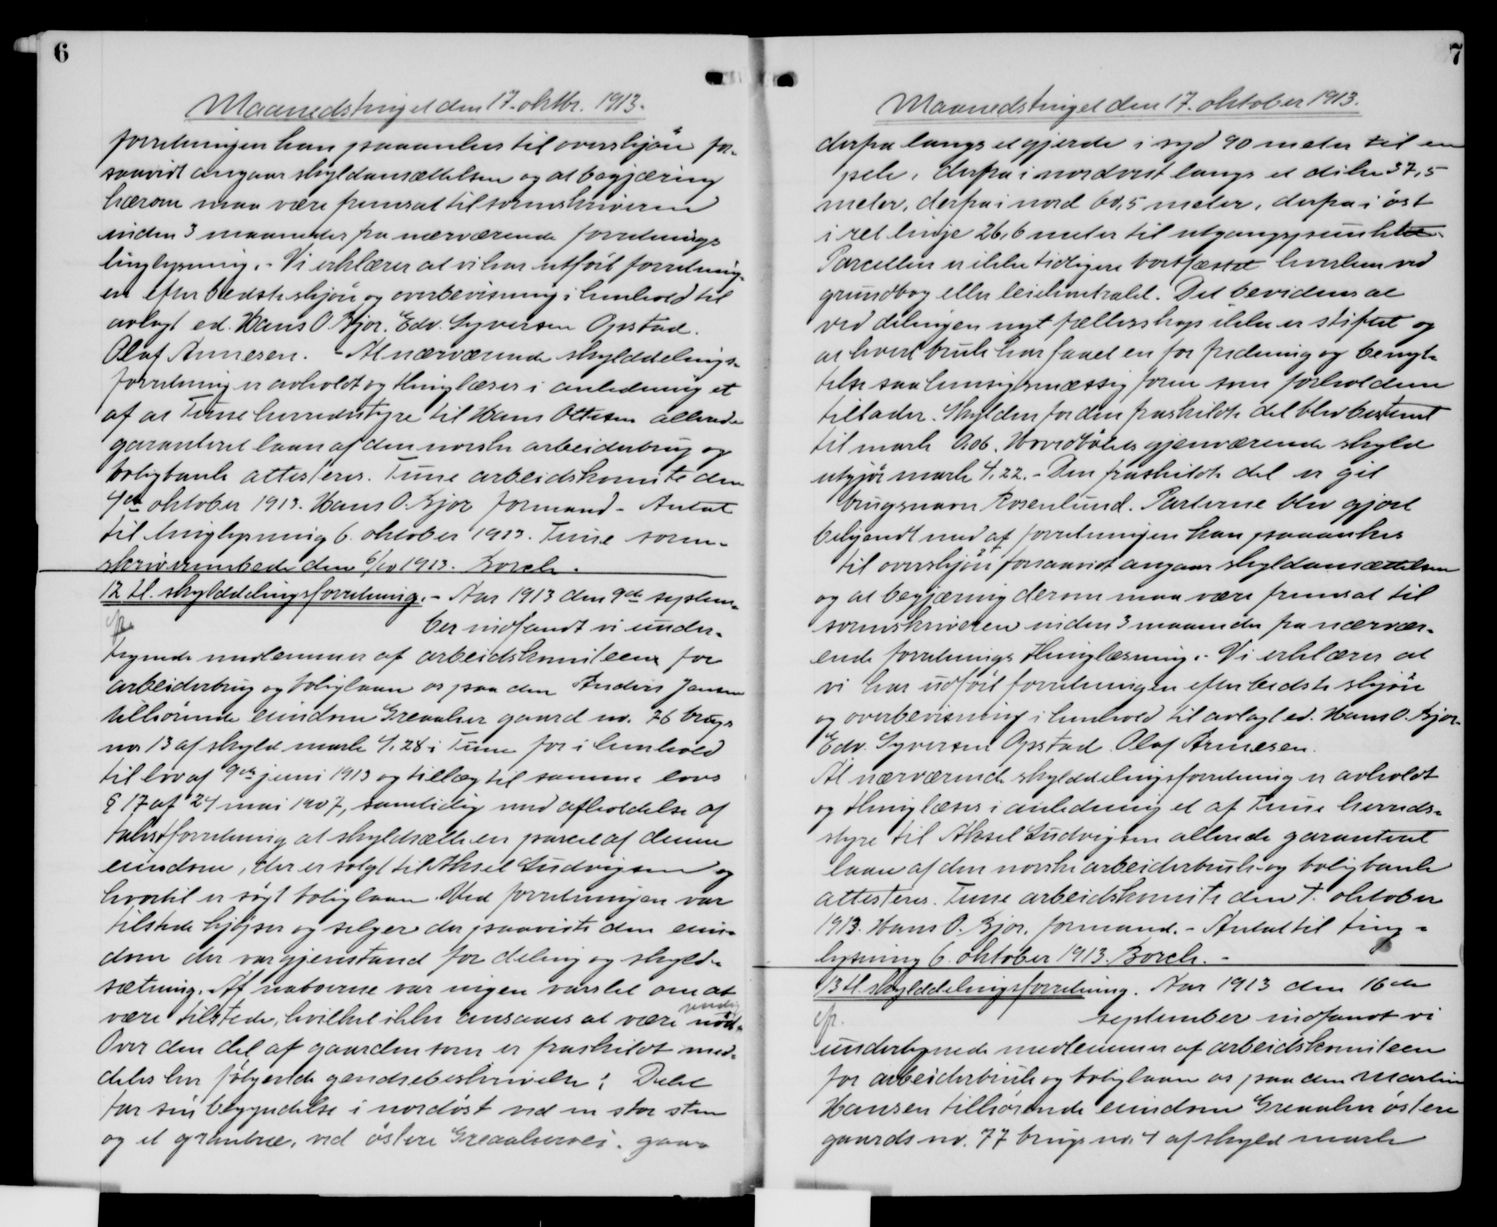 6
Maanedstinget den 17. oktbr. 1913.
forretningen kan paaankes til overskjön for-
saavidt angaar skyldansættelsen og at begjæring
herom maa være fremsat til sorenskriveren
inden 3 maaneder fra nærværende forretnings
tinglysning. - Vi erklærer at vi har utfört forretning-
en efter bedste skjön og overbevisning i henhold til
avlagt ed. Hans O. Bjor. Edv. Syversen Opstad.
Olaf Arnesen. - At nærværende skylddelings-
forretning er avholdt og thinglæses i anledning et
af at Tune herredsstyre til Hans Ottesen allerede
garanteret laan af den norske arbeiderbrug og
boligbank attesteres. Tune arbeidskomite den
4de oktober 1913. Hans O. Bjor formand. - Antat
til tinglysning 6. oktober 1913. Tune soren-
skriverembede den 6/10 1913. Borch.
12 tl. skylddelingsforretning. - Aar 1913 den 9de septem-
ber indfandt vi under-
tegnede medlemmer af arbeidskomiteen for
arbeiderbrug og boliglaan os paa den Anders Jansen
tilhörende eiendom Greaaker gaard nr. 76 brugs
no 13 af skyld mark 4.28 i Tune for i henhold
til lov af 9de juni 1913 og tillæg til samme lovs
§ 17 af 24 mai 1907, samtidig med afholdelse af
takstforretning at skyldsætte en parcel af denne
eiendom, der er solgt til Aksel Ludvigsen og
hvortil er sögt boliglaan. Ved forretningen var
tilstede kjöper og selger der paaviste den eien-
dom der var gjenstand for deling og skyld-
sætning. Af naboerne var ingen varslet om at
være tilstede, hvilket ikke ansaaes at være nöd-
vendig
Over den del af gaarden som er fraskildt med-
deles her fölgende grændsebeskrivelse: Delet
tar sin begyndelse i nordöst ved en stor sten
og et grantræ, ved östere Greaakervei. gaar
7
Maanedstinget den 17. oktober 1913.
derfra langs et gjerde i syd 90 meter til en
pele, derfra i nordvest langs et dike 37,5
meter, derfra i nord 60,5 meter, derfra i öst
i ret linje 26,6 meter til utgangspunktet.
Parcellen er ikke tidligere bortfæstet hverken ved
grundbog eller leiekontrakt. Det bevidnes at
ved delingen nyt fællesskap ikke er stiftet og
at hvert bruk har faaet en for fredning og benyt-
telse saa hensigtsmæssig form som forholdene
tillader. Skylden for den fraskildte del blev bestemt
til mark 0.06. Hovedbölets gjenværende skyld
utgjör mark 4.22. - Den fraskildte del er git
brugsnavn Rosenlund. Parterne blev gjort
bekjendt med at forretningen kan paaankes
til overskjön forsaavidt angaar skyldansættelsen
og at begjæring derom maa være fremsat til
sorenskriveren inden 3 maaneder fra nærvær-
ende forretnings thinglæsning. - Vi erklærer at
vi har udfört forretningen efter bedste skjön
og overbevisning i henhold til avlagt ed. Hans O. Bjor.
Edv. Syversen Opstad. Olaf Arnesen.
At nærværende skylddelingsforretning er avholdt
og thinglæses i anledning et af Tune herreds-
styre til Aksel Ludvigsen allerede garanteret
laan af den norske arbeiderbruk- og boligbank
attesteres. Tune arbeidskomite den 4. oktober
1913. Hans O. Bjor. formand. - Antat til ting-
lysning 6. oktober 1913. Borch. -
13 tl. skylddelingsforretning. Aar 1913 den 16de
september indfandt vi
undertegnede medlemmer af arbeidskomiteen
for arbeiderbruk og boliglaan os paa den Martin
Hansen tilhörende eiendom Greaaker östere
gaards no. 77 brugs no. 4 af skyld mark